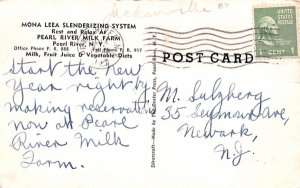 MONA LEEA SLENDERIZING SYSTEM
Rest and Relax At
PEARL RIVER MILK FARM
Pearl River, N. Y.
Office Phone P. R. 880 Toll Phone P. R. 917
Milk, Fruit Juice & Vegetable Diets
POST CARD
Start the New
Year right by
making reservation
now at Pearl
River Milk
Farm.
M. Sulzberg
35 Seymour Ave,
Newark,
N.J.